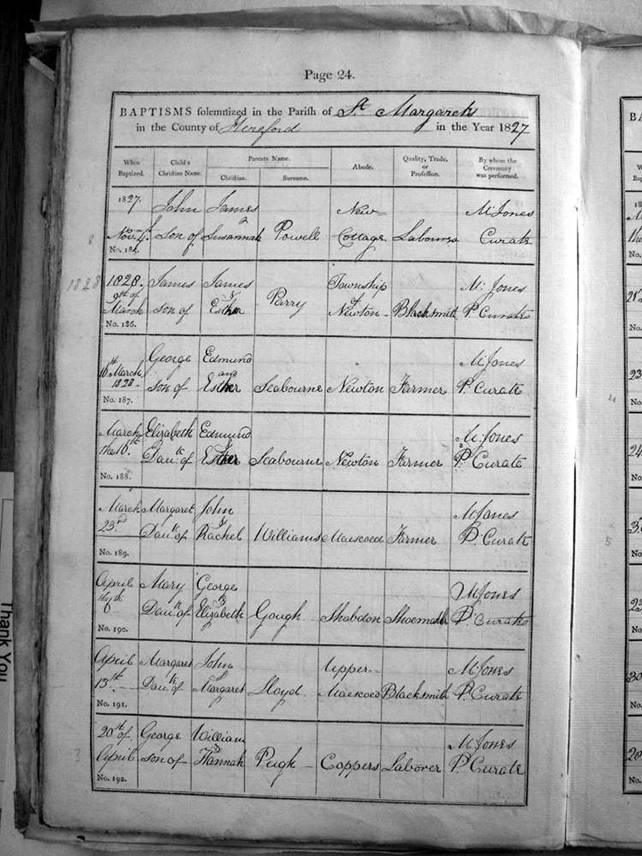 Page 24.
BAPTISMS solemnized in the Parish of St. Margarets
in the County of Hereford in the Year 1827
When Baptized. Child's Christian Name. Parents Name. Christian. Surname. Abode. Quality, Trade, or Profession. By whom the Ceremony was performed.
1827. John James New M. Jones
Nov. 4. Son of & Susannah Powell Cottage Labourer Curate
No. 185.
1828
1828. James James Township M. Jones
9th of & Perry of
March Son of Esther Newton Blacksmith P. Curate
No. 186.
16th March George Edmund M. Jones
1828. Son of and Esther Seabourne Newton Farmer P. Curate
No. 187.
March Elizabeth Edmund M. Jones
the 16th Daur. of Esther Seabourne Newton Farmer P. Curate
No. 188.
March Margaret John M. Jones
23rd Daur. of & Rachel Williams Maescoed Farmer P. Curate
No. 189.
April Mary George M. Jones
6th Daur. of & Elizabeth Gough Shobdon Shoemaker P. Curate
No. 190.
April Margaret John Upper M. Jones
13th Daur. of & Margaret Lloyd Maescoed Blacksmith P. Curate
No. 191.
20th of George William M. Jones
April Son of & Hannah Pugh Coppers Laborer P. Curate
No. 192.
3
Thank You